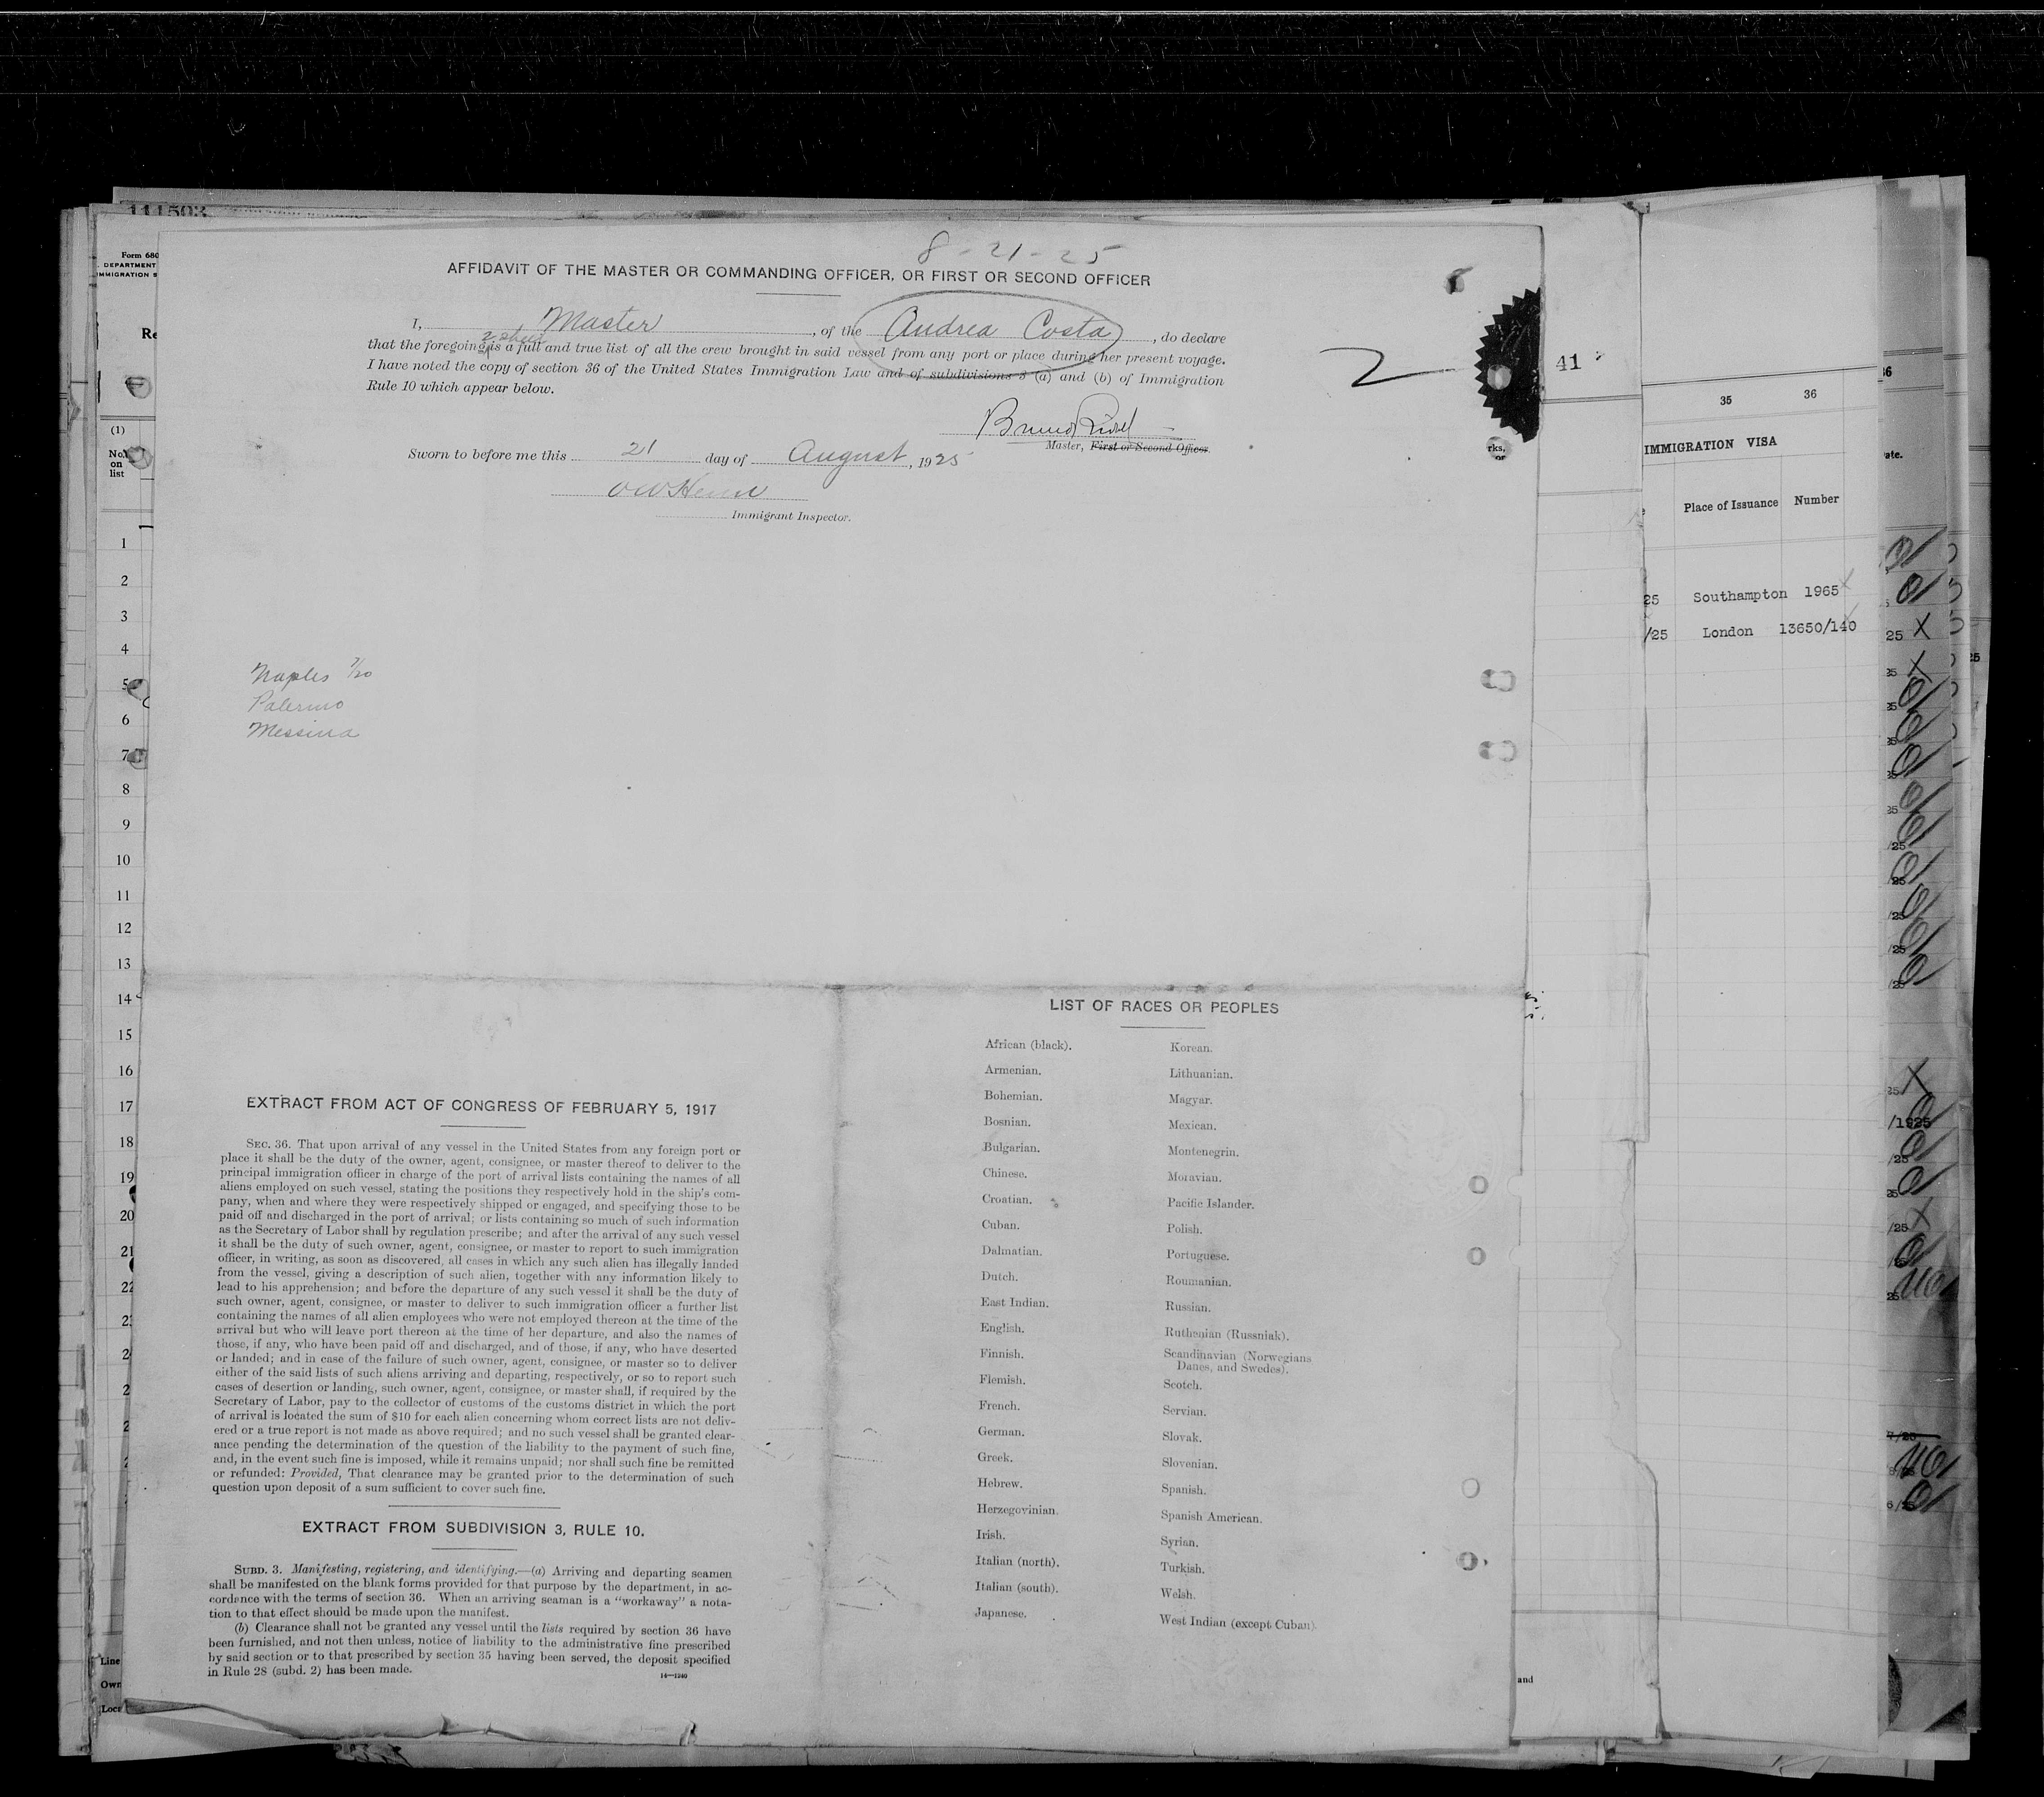 111503
Form 680
DEPARTMENT
IMMIGRATION S
Re
(1)
No.
on
list
1
2
3
4
5
6
7
8
9
10
11
12
13
14
15
16
17
18
19
20
21
22
8-21-25
AFFIDAVIT OF THE MASTER OR COMMANDING OFFICER, OR FIRST OR SECOND OFFICER
I, Master, of the Andrea Costa, do declare
that the foregoing is a full and true list of all the crew brought in said vessel from any port or place during her present voyage.
I have noted the copy of section 36 of the United States Immigration Law and of subdivisions 3 (a) and (b) of Immigration
Rule 10 which appear below.
2
Master, First or Second Officer.
Sworn to before me this 21 day of August, 1925
Immigrant Inspector.
Naples 7/20
Palermo
Messina
EXTRACT FROM ACT OF CONGRESS OF FEBRUARY 5, 1917
SEC. 36. That upon arrival of any vessel in the United States from any foreign port or
place it shall be the duty of the owner, agent, consignee, or master thereof to deliver to the
principal immigration officer in charge of the port of arrival lists containing the names of all
aliens employed on such vessel, stating the positions they respectively hold in the ship's com-
pany, when and where they were respectively shipped or engaged, and specifying those to be
paid off and discharged in the port of arrival; or lists containing so much of such information
as the Secretary of Labor shall by regulation prescribe; and after the arrival of any such vessel
it shall be the duty of such owner, agent, consignee, or master to report to such immigration
officer, in writing, as soon as discovered, all cases in which any such alien has illegally landed
from the vessel, giving a description of such alien, together with any information likely to
lead to his apprehension; and before the departure of any such vessel it shall be the duty of
such owner, agent, consignee, or master to deliver to such immigration officer a further list
containing the names of all alien employees who were not employed thereon at the time of the
arrival but who will leave port thereon at the time of her departure, and also the names of
those, if any, who have been paid off and discharged, and of those, if any, who have deserted
or landed; and in case of the failure of such owner, agent, consignee, or master so to deliver
either of the said lists of such aliens arriving and departing, respectively, or so to report such
cases of desertion or landing, such owner, agent, consignee, or master shall, if required by the
Secretary of Labor, pay to the collector of customs of the customs district in which the port
of arrival is located the sum of $10 for each alien concerning whom correct lists are not deliv-
ered or a true report is not made as above required; and no such vessel shall be granted clear-
ance pending the determination of the question of the liability to the payment of such fine,
and, in the event such fine is imposed, while it remains unpaid; nor shall such fine be remitted
or refunded: Provided, That clearance may be granted prior to the determination of such
question upon deposit of a sum sufficient to cover such fine.
EXTRACT FROM SUBDIVISION 3, RULE 10.
SUBD. 3. Manifesting, registering, and identifying.—(a) Arriving and departing seamen
shall be manifested on the blank forms provided for that purpose by the department, in ac-
cordance with the terms of section 36. When an arriving seaman is a "workaway" a nota-
tion to that effect should be made upon the manifest.
(b) Clearance shall not be granted any vessel until the lists required by section 36 have
been furnished, and not then unless, notice of liability to the administrative fine prescribed
by said section or to that prescribed by section 35 having been served, the deposit specified
in Rule 28 (subd. 2) has been made.
14—1240
LIST OF RACES OR PEOPLES
African (black).
Armenian.
Bohemian.
Bosnian.
Bulgarian.
Chinese.
Croatian.
Cuban.
Dalmatian.
Dutch.
East Indian.
English.
Finnish.
Flemish.
French.
German.
Greek.
Hebrew.
Herzegovinian.
Irish.
Italian (north).
Italian (south).
Japanese.
Korean.
Lithuanian.
Magyar.
Mexican.
Montenegrin.
Moravian.
Pacific Islander.
Polish.
Portuguese.
Roumanian.
Russian.
Ruthenian (Russniak).
Scandinavian (Norwegians
Danes, and Swedes).
Scotch.
Servian.
Slovak.
Slovenian.
Spanish.
Spanish American.
Syrian.
Turkish.
Welsh.
West Indian (except Cuban).
Line
Own
41
rks,
or
and
35 36
IMMIGRATION VISA
Place of Issuance Number
25 Southampton 1965
/25 London 13650/140
ate.